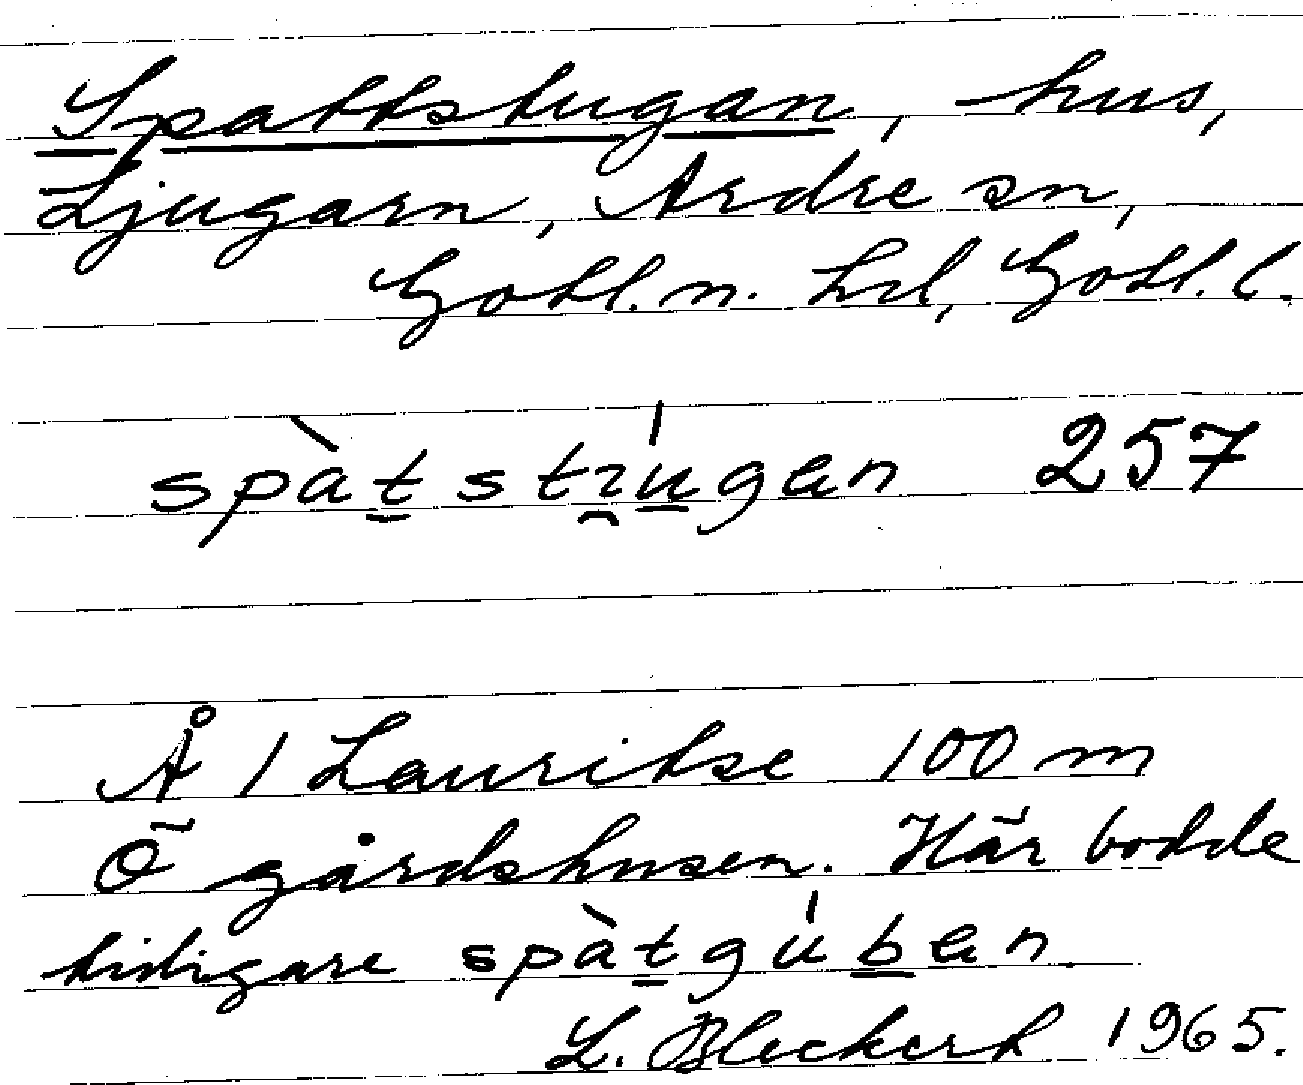 Spattstugan, hus,
Ljugarn, Ardre sn,
Gotl. n. hd, Gotl. l.
spàtstɿúgan 257
Å 1 Lauritse 100 m
Ö gårdshusen. Här bodde
tidigare spàtgúban.
L. Bleckert 1965.